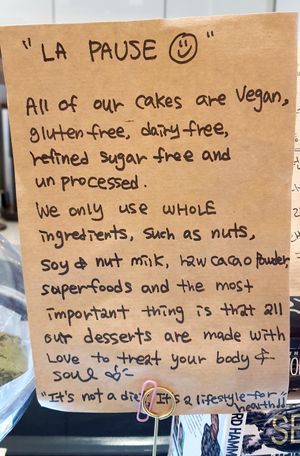 "LA PAUSE ☺"
All of our cakes are Vegan,
gluten free, dairy free,
refined sugar free and
unprocessed.
We only use WHOLE
ingredients, such as nuts,
soy & nut milk, raw cacao powder,
superfoods and the most
important thing is that all
our desserts are made with
Love to treat your body &
soul
"It's not a diet, It's a lifestyle for
health"
RD HAMM